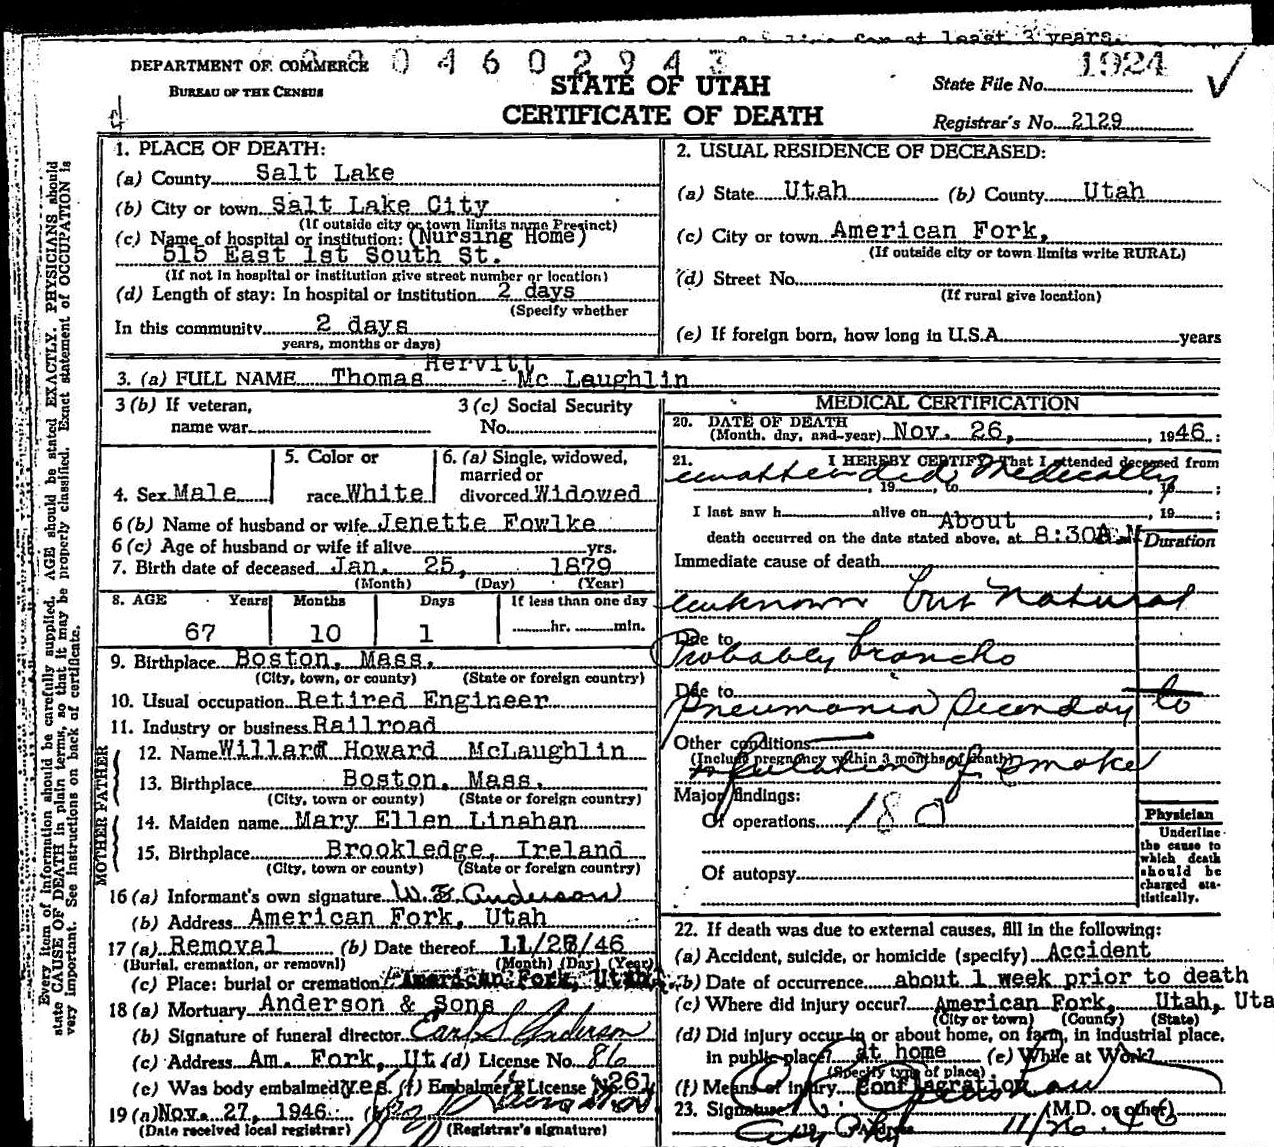 for at least 3 years.
DEPARTMENT OF COMMERCE
BUREAU OF THE CENSUS
04602943
STATE OF UTAH
CERTIFICATE OF DEATH
State File No. 1924
Registrar's No. 2129
Every item of information should be carefully supplied. AGE should be stated EXACTLY. PHYSICIANS should
state CAUSE OF DEATH in plain terms, so that it may be properly classified. Exact statement of OCCUPATION is
very important. See instructions on back of certificate.
1. PLACE OF DEATH:
(a) County Salt Lake
(b) City or town Salt Lake City
(If outside city or town limits name Precinct)
(c) Name of hospital or institution: (Nursing Home)
515 East 1st South St.
(If not in hospital or institution give street number or location)
(d) Length of stay: In hospital or institution 2 days
(Specify whether
In this community 2 days
years, months or days)
2. USUAL RESIDENCE OF DECEASED:
(a) State Utah (b) County Utah
(c) City or town American Fork,
(If outside city or town limits write RURAL)
(d) Street No.
(If rural give location)
(e) If foreign born, how long in U.S.A. years
Hervitt
3. (a) FULL NAME Thomas Mc Laughlin
3 (b) If veteran, name war
3 (c) Social Security No.
4. Sex Male
5. Color or race White
6. (a) Single, widowed, married or divorced Widowed
6 (b) Name of husband or wife Jenette Fowlke
6 (c) Age of husband or wife if alive yrs.
7. Birth date of deceased Jan. 25, 1879
(Month) (Day) (Year)
8. AGE Years Months Days If less than one day
67 10 1 hr. min.
9. Birthplace Boston, Mass.
(City, town, or county) (State or foreign country)
10. Usual occupation Retired Engineer
11. Industry or business Railroad
FATHER
12. Name Willard Howard McLaughlin
13. Birthplace Boston, Mass.
(City, town or county) (State or foreign country)
MOTHER
14. Maiden name Mary Ellen Linahan
15. Birthplace Brookledge, Ireland
(City, town or county) (State or foreign country)
16 (a) Informant's own signature Anderson
(b) Address American Fork, Utah
17 (a) Removal (b) Date thereof 11/26/46
(Burial, cremation, or removal) (Month) (Day) (Year)
(c) Place: burial or cremation American Fork, Utah
18 (a) Mortuary Anderson & Sons
(b) Signature of funeral director Earl S Anderson
(c) Address Am. Fork, Ut. (d) License No. 86
(e) Was body embalmed yes (f) Embalmer's License N261
19 (a) Nov. 27, 1946 (b)
(Date received local registrar) (Registrar's signature)
MEDICAL CERTIFICATION
20. DATE OF DEATH
(Month, day, and year) Nov. 26, 1946
21. I HEREBY CERTIFY, That I attended deceased from
unattended Medically , 19 , to , 19 ;
I last saw h alive on , 19 ;
About
death occurred on the date stated above, at 8:30A.M
Duration
Immediate cause of death
unknown but natural
Due to
Probably broncho
Due to
pneumonia secondary to
Other conditions
(Include pregnancy within 3 months of death)
of smoke
Major findings:
Of operations 180
Of autopsy
Physician
Underline the cause to which death should be charged statistically.
22. If death was due to external causes, fill in the following:
(a) Accident, suicide, or homicide (specify) Accident
(b) Date of occurrence about 1 week prior to death
(c) Where did injury occur? American Fork, Utah, Uta
(City or town) (County) (State)
(d) Did injury occur in or about home, on farm, in industrial place,
in public place? at home (e) While at Work?
(Specify type of place)
(f) Means of injury Conflagration
23. Signature (M.D. or other)
Address 11/26 46